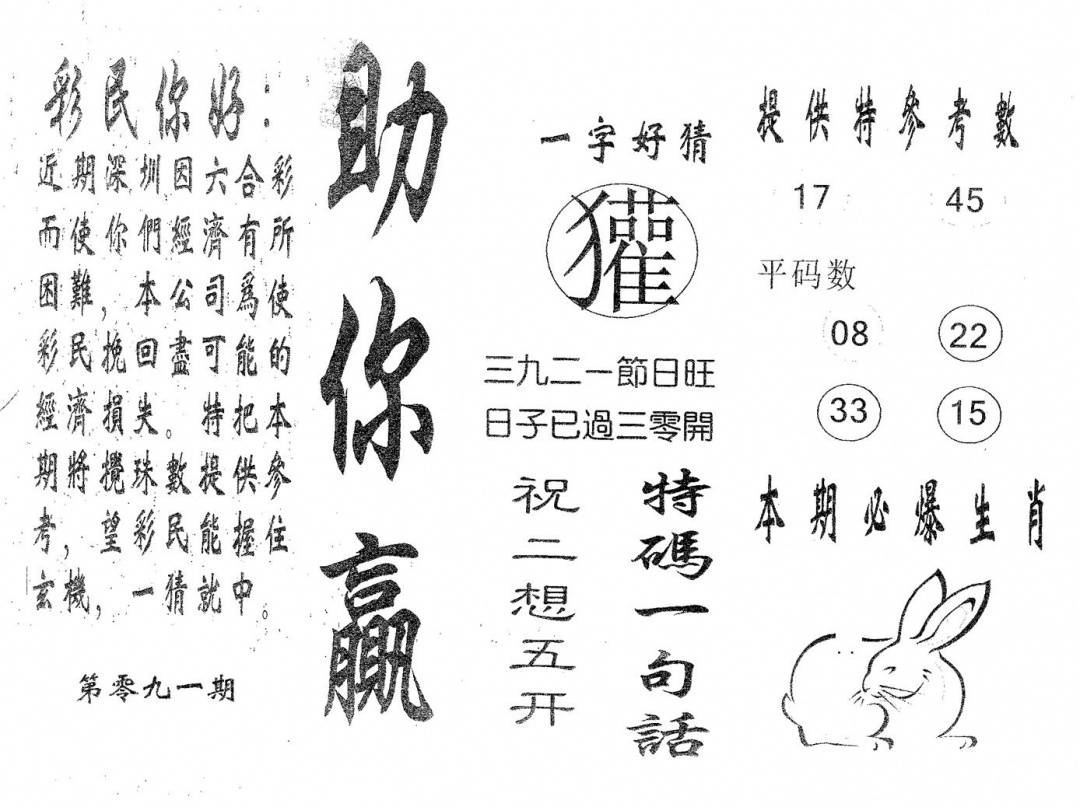 彩民你好：
近期深圳因六合彩
而使你們經濟有所
困難，本公司爲使
彩民挽回盡可能的
經濟損失。特把本
期將攪珠數提供參
考，望彩民能握住
玄機，一猜就中。
第零九一期
助你贏
一字好猜
獾
三九二一節日旺
日子已過三零開
特碼一句話
祝二想五开
提供特參考數
17 45
平码数
08 22
33 15
本期必爆生肖